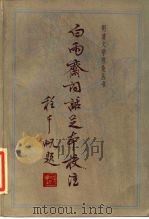 明清文学理论丛书
白雨斋词话足本校注
程千帆题